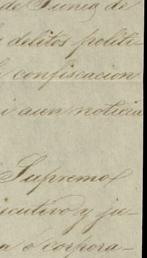 de Junio de
delitos politi-
confiscacion
aun noticia
Supremo
ecutivo y ju-
o corpora-